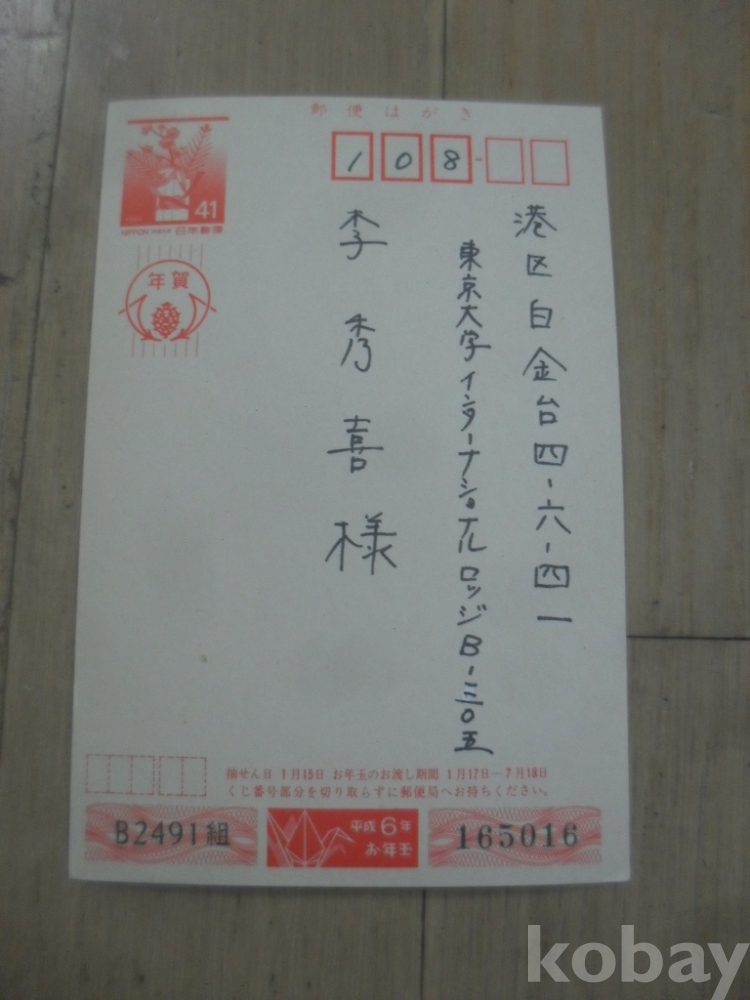 郵便はがき
41
NIPPON 日本郵便
年賀
108-
港区白金台四-六-四一
東京大学インターナショナルロッジB-三〇五
李秀喜様
抽せん日 1月15日 お年玉のお渡し期間 1月17日-7月18日
くじ番号部分を切り取らずに郵便局へお持ちください。
B2491組
平成6年
お年玉
165016
kobay